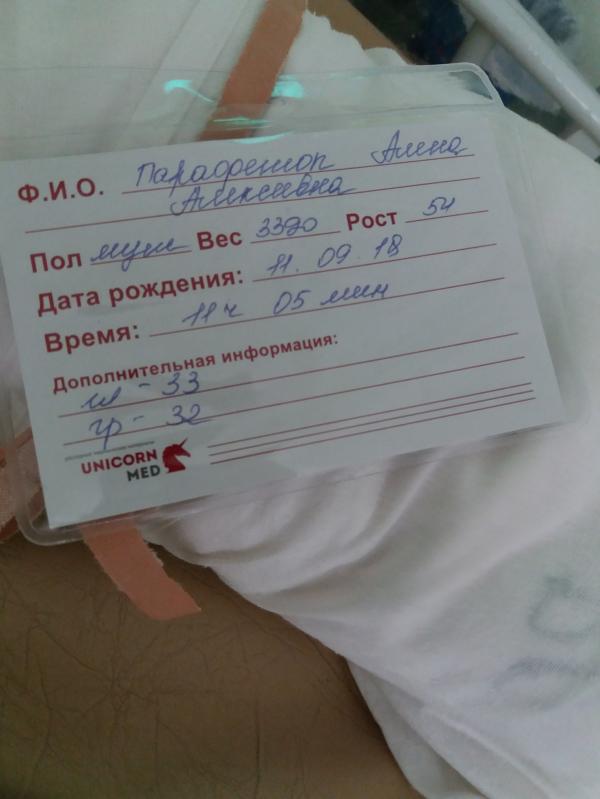 Ф.И.О. Парафешоп Алина
Алексеевна
Пол муж Вес 3320 Рост 54
Дата рождения: 11.09.18
Время: 11 ч 05 мин
Дополнительная информация:
гл - 33
гр - 32
UNICORN
MED